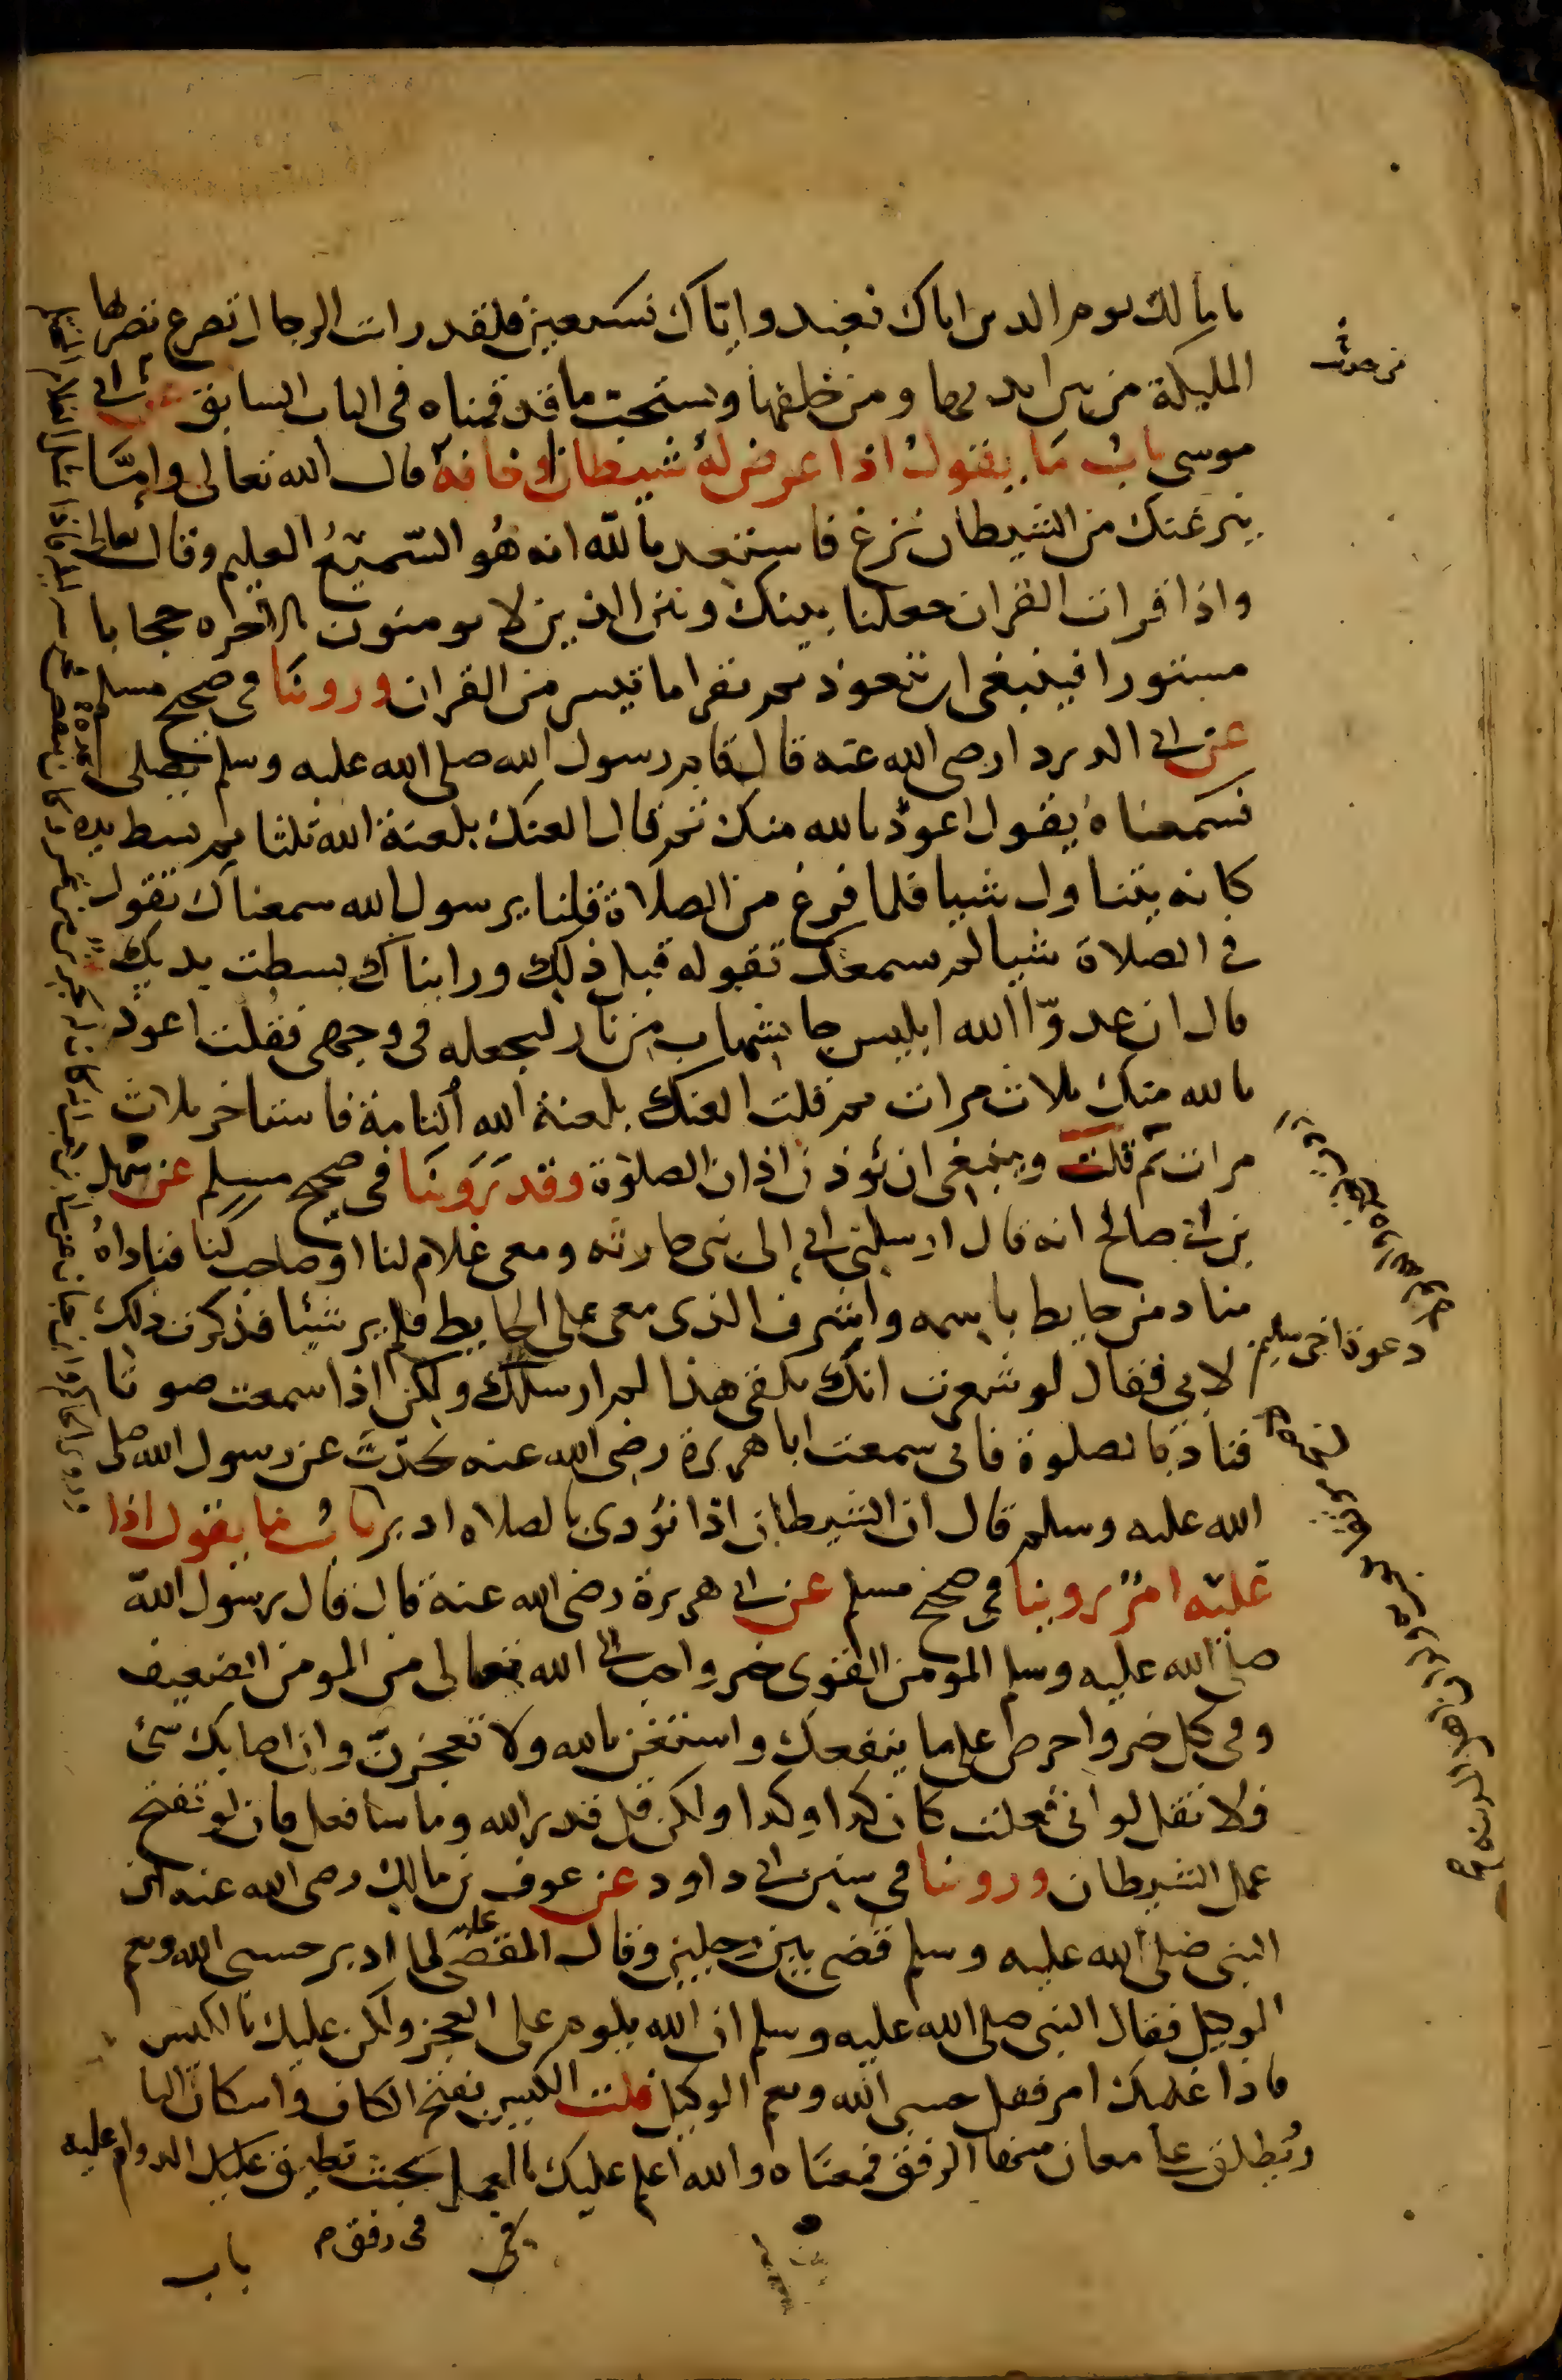 يا مالك يوم الدين اياك نعبد واياك نستعين فلقد رايت الرجال تصرع تضربها
المليكة من بين ايديها ومن خلفها ويستحب ما قدمناه في الباب السابق حديث ابي
موسى باب ما يقول اذا عرض له شيطان او خافه قال الله تعالى وامّا
ينزغنك من الشيطان نزغ فاستعذ بالله انه هو السّميع العليم وقال تعالى
واذا قرات القران جعلنا بينك وبين الذين لا يومنون بالاخره حجابا
مستورا فينبغي ان يتعوذ ثم يقرا ما تيسر من القران وروينا في صحيح مسلم
عن ابي الدردا رضي الله عنه قال قام رسول الله صلى الله عليه وسلم يصلي
فسمعناه يقول اعوذ بالله منك ثم قال العنك بلعنة الله ثلثا ثم بسط يده
كانه يتناول شيا فلما فرغ من الصلاة قلنا يرسول الله سمعناك تقول
في الصلاة شيا لم نسمعك تقوله قبل ذلك ورايناك بسطت يديك
قال ان عدوّا الله ابليس جا بشهاب من نار ليجعله في وجهي فقلت اعوذ
بالله منك ثلاث مرات ثم قلت العنك بلعنة الله التامة فاستاخر ثلاث
مرات ثم قلت وينبغي ان يؤذن اذان الصلوة وقد روينا في صحيح مسلم عن سهيل
بن ابي صالح انه قال ارسلني ابي إلى بني حارثه ومعي غلام لنا او صاحب لنا فناداهُ
مناد من حايط باسمه واشرف الذي معي على الحايط فلم ير شيئا فذكرت ذلك
لابي فقال لو شعرت انك تلقى هذا لم ارسلك ولكن اذا سمعت صوتا
فناد بالصلوة فاني سمعت ابا هريرة رضي الله عنه يحدّث عن رسول الله صلى
الله عليه وسلم قال ان الشيطان اذا نؤدي بالصلاه ادبر باب ما يقول اذا
غلبه امرٌ روينا في صحيح مسلم عن ابي هريرة رضي الله عنه قال قال رسول الله
صلى الله عليه وسلم المومن القوي خير واحب الى الله تعالى من المومن الضعيف
وفي كل خير واحرص على ما ينفعك واستعن بالله ولا تعجزنّ وان اصابك شئ
فلا تقل لو اني فعلت كان كذا وكذا ولكن قل قدر الله وما شا فعل فان لو تفتح
عمل الشيطان وروينا في سنن ابي داود عن عوف بن مالك رضي الله عنه ان
النبي صلى الله عليه وسلم قضى بين رجلين وقال المقضي عليه لما ادبر حسبي الله ونعم
الوكيل فقال النبي صلى الله عليه وسلم ان الله يلوم على العجز ولكن عليك بالكيس
فاذا غلبك امر فقل حسبي الله ونعم الوكيل قلت الكيس بفتح الكاف واسكان اليا
ويُطلق على معان منها الرفق فمعناه والله اعلم عليك بالعمل بحيث تطيق عليك الدوام عليه
في رفق
باب